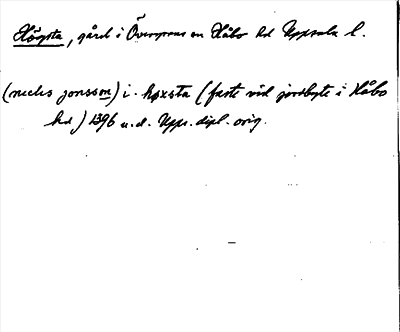 Högsta, gård i Övergrans sn Håbo hd Uppsala l.
(niclis jonsson) i høxsta (faste vid jordbyte i Håbo
hd) 1396 u.d. Upps. dipl. orig.